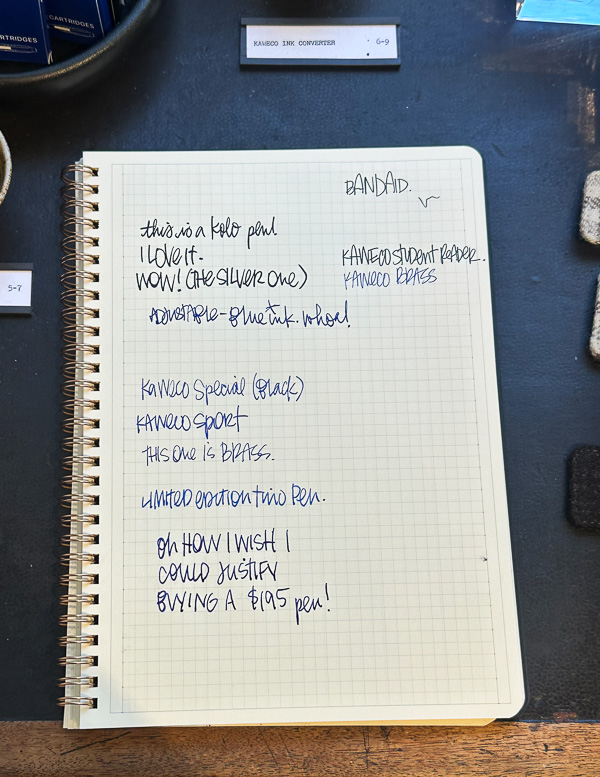 CARTRIDGES
CARTRIDGES
KAWECO INK CONVERTER : 6-9
5-7
BANDAID.
this is a Kolo pen!
I LOVE it.
WOW! (THE SILVER One)
KAWECO STUDENT READER.
KAWECO BRASS
ADJUSTABLE - Blue ink. whoa!
KaWeCo Special (Black)
KAWECO SPORT
THIS One is BRASS.
LIMITED EDITION Pen.
Oh HOW I WISH I
COULD JUSTIFY
BUYING A $195 pen!